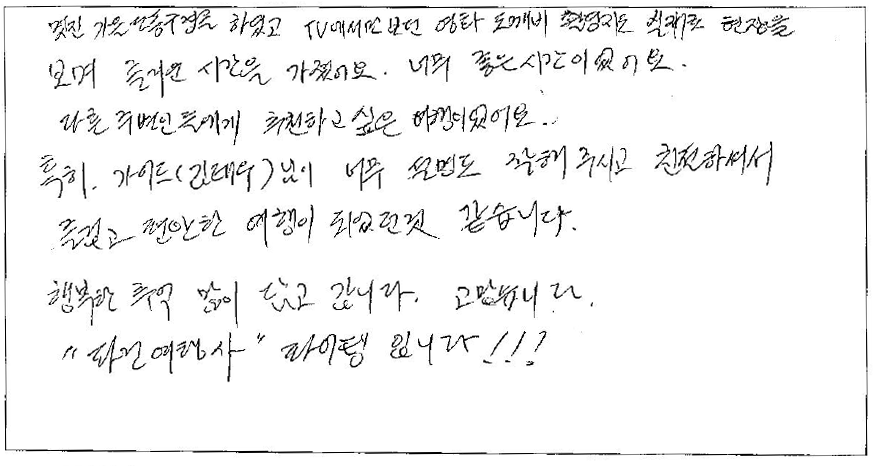 멋진 가을 단풍구경을 하였고 TV에서만 보던 영화 도깨비 촬영지도 실제로 현장을
보며 즐거운 시간을 가졌어요. 너무 좋은시간이었어요.
다른 주변인들에게 추천하고 싶은 여행이었어요.
특히. 가이드(김태우)님이 너무 설명도 잘해 주시고 친절하셔서
즐겁고 편안한 여행이 되었던것 같습니다.
행복한 추억 많이 담고 갑니다. 고맙습니다.
"파란여행사" 파이팅 입니다!!!